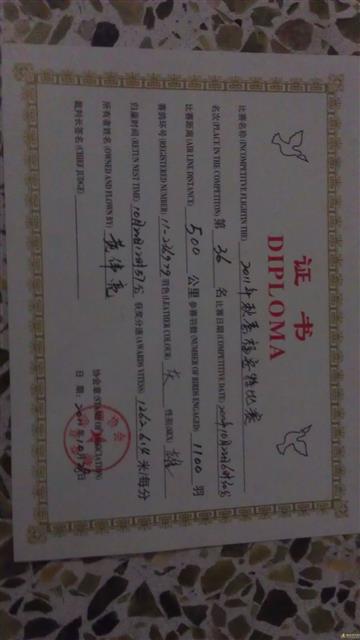 证书
DIPLOMA
比赛名称(INCOMPETITIVE FLIGHTIN THE): 2011年秋季 比赛
名次(PLACE IN THE COMPETITION): 第 36 名 比赛日期(COMPETITIVE DATE):
比赛距离(AIR LINE DISTANCE): 500 公里 参赛羽数(NUMBER OF BIRDS ENGAGED): 1100 羽
赛鸽环号(REGISTERED NUMBER): 羽色(LEATHER COLOUR): 灰 性别(SEX): 雄
归巢时间(RETUN NEST TIME): 获奖分速(AWARDS VITESS): 1262.614 米/每分
所有者姓名(OWNED AND FLOWN BY): 黄伟亮 协会章(STAMP OF ASSOCIATION)
裁判长签名(CHIEF JUDGE): 日期: 2011年10月